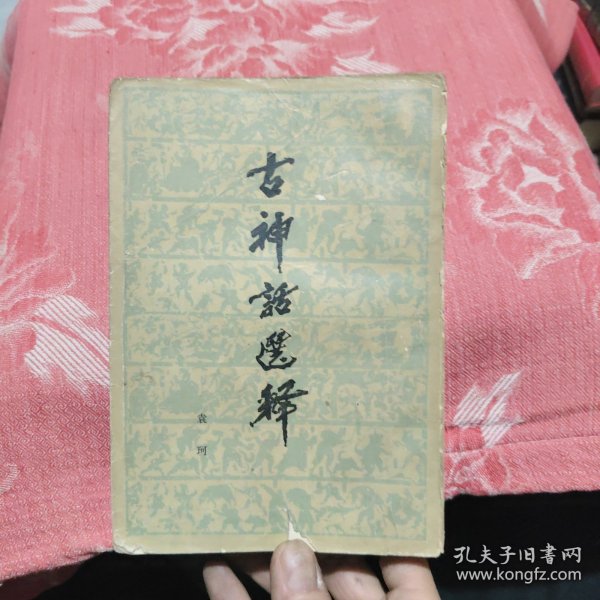 古神話選释
袁珂
孔夫子旧書网
www.kongfz.com